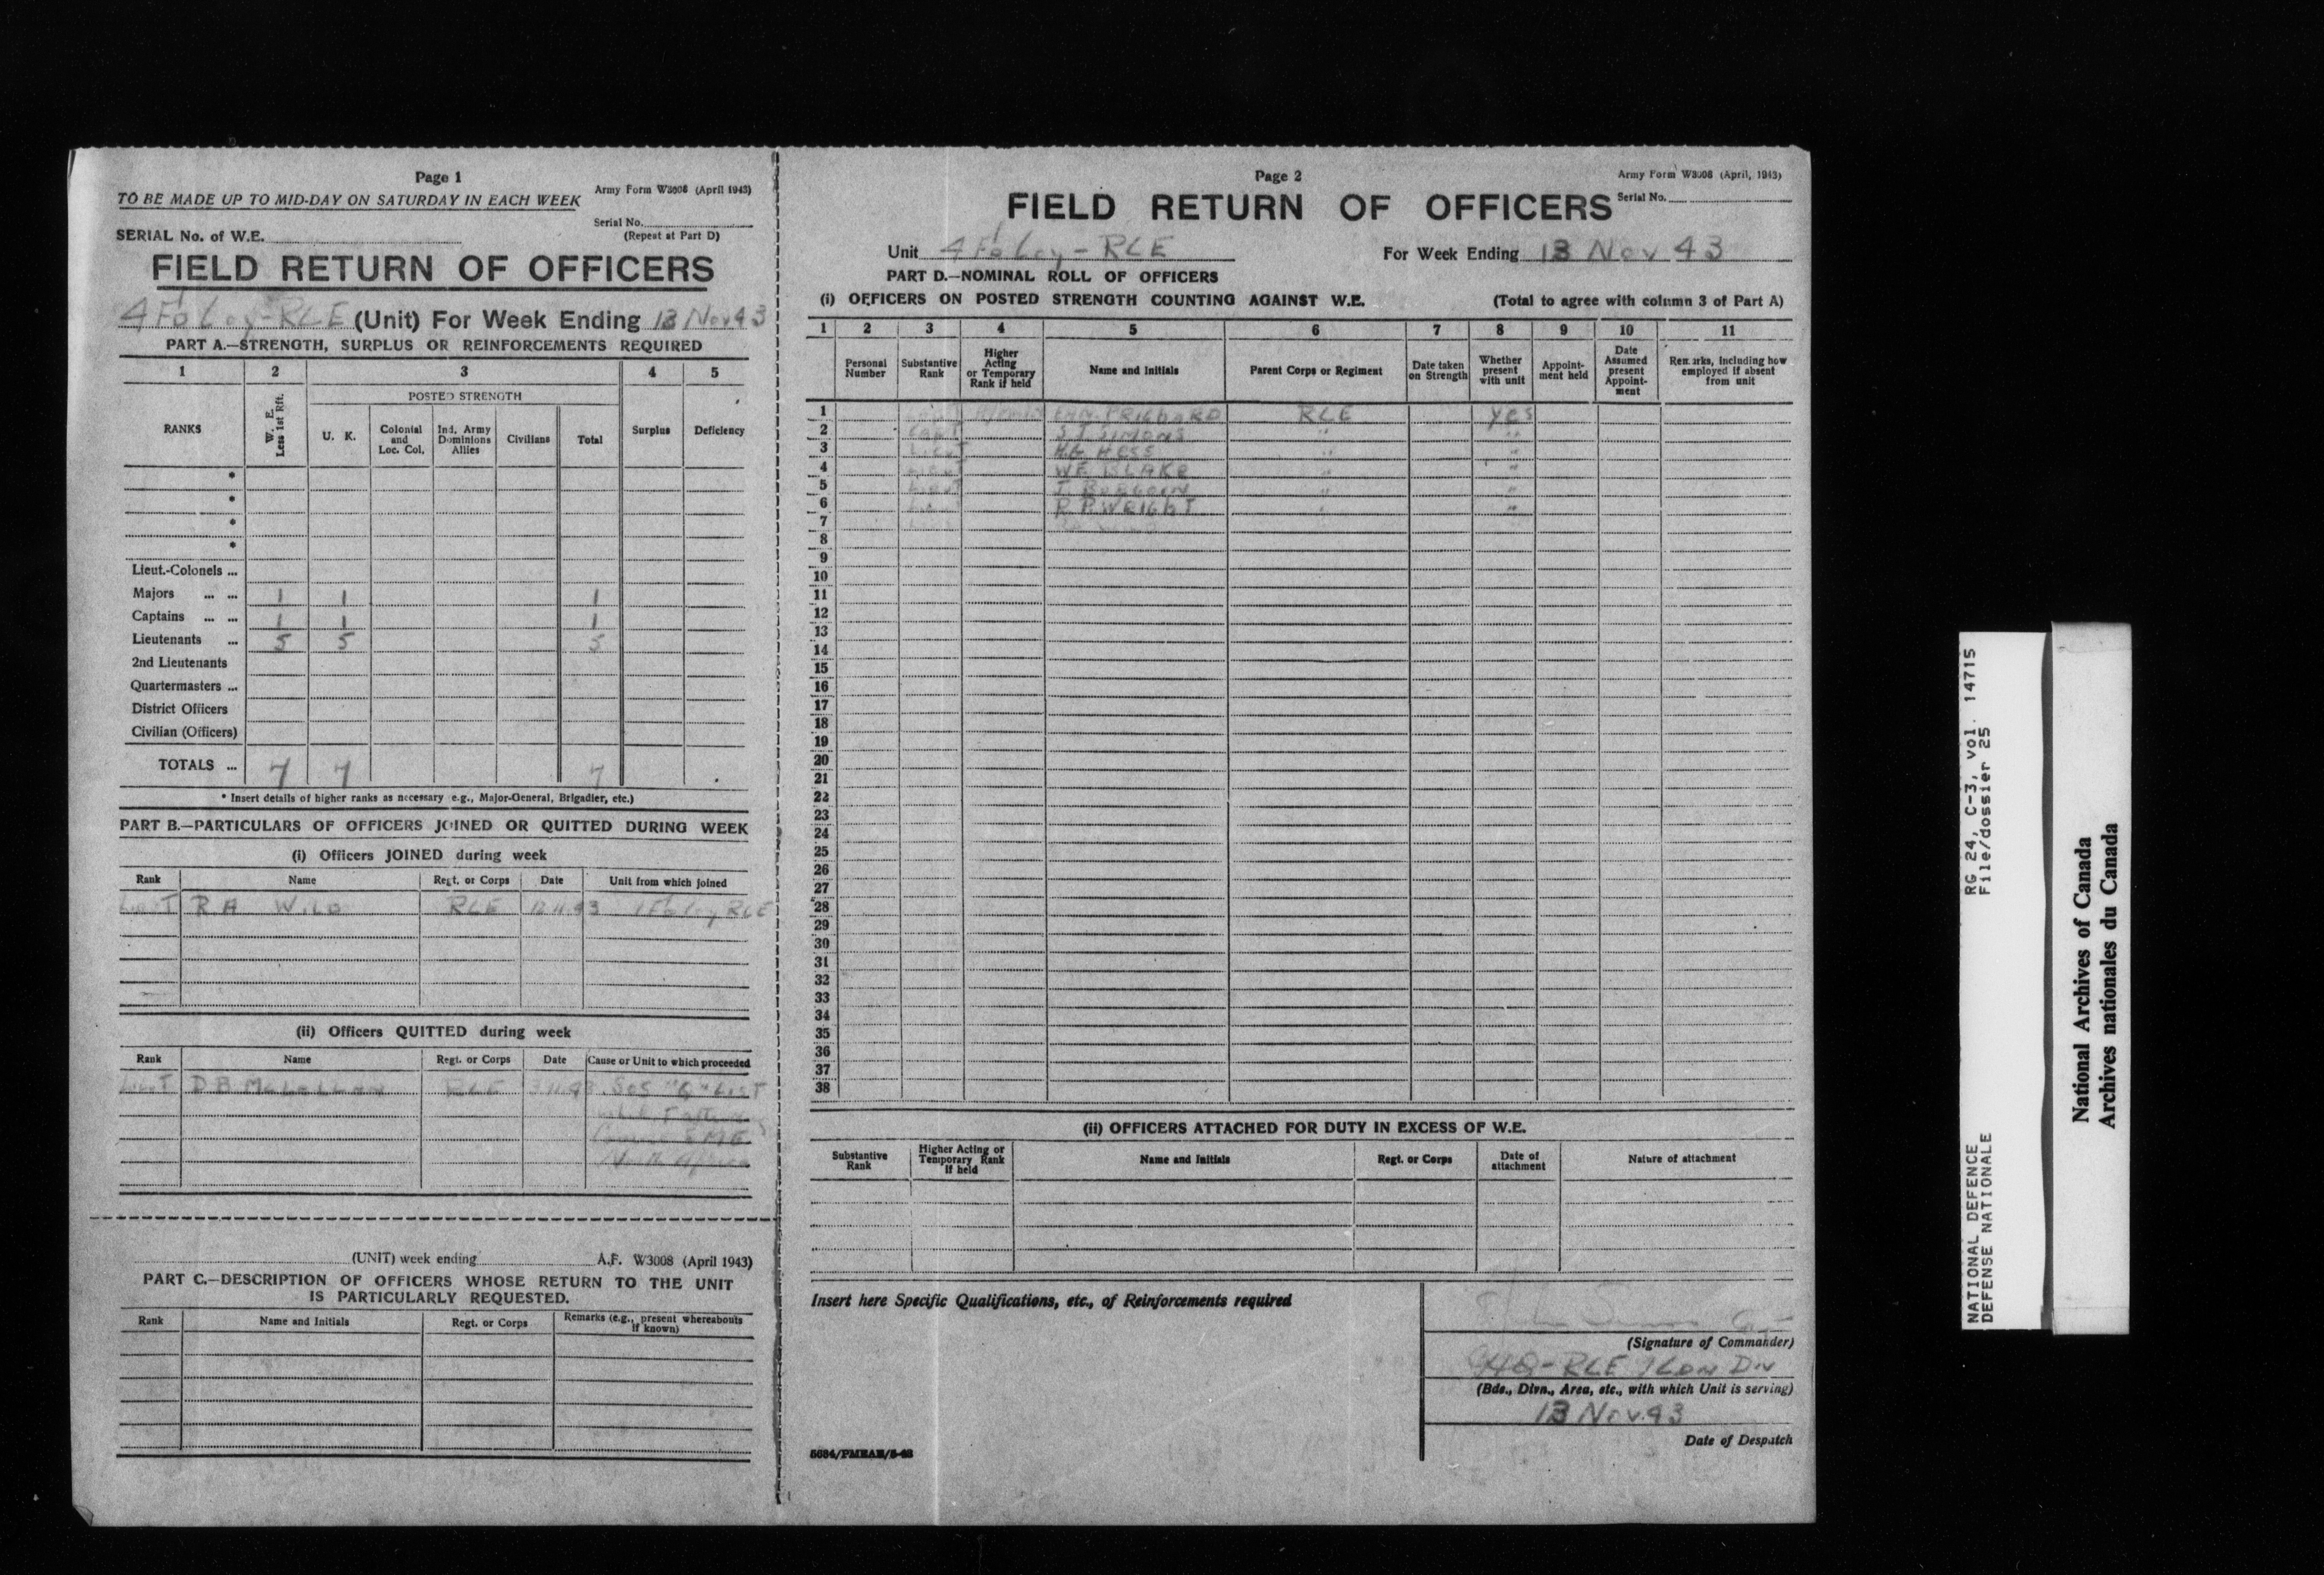 Page 1
TO BE MADE UP TO MID-DAY ON SATURDAY IN EACH WEEK
Army Form W3008 (April 1943)
Serial No.
(Repeat at Part D)
SERIAL No. of W.E.
FIELD RETURN OF OFFICERS
RCE (Unit) For Week Ending 13 Nov 43
PART A.—STRENGTH, SURPLUS OR REINFORCEMENTS REQUIRED
1 2 3 4 5
RANKS
W. E. Less 1st Rft.
POSTED STRENGTH
U. K.
Colonial and Loc. Col.
Ind. Army Dominions Allies
Civilians
Total
Surplus
Deficiency
*
*
*
*
Lieut.-Colonels ...
Majors ... ... 1 1 1
Captains ... ... 1 1 1
Lieutenants ... 5 5 5
2nd Lieutenants
Quartermasters ...
District Officers
Civilian (Officers)
TOTALS ... 7 7 7
* Insert details of higher ranks as necessary e.g., Major-General, Brigadier, etc.)
PART B.—PARTICULARS OF OFFICERS JOINED OR QUITTED DURING WEEK
(i) Officers JOINED during week
Rank Name Regt. or Corps Date Unit from which joined
LieuT R A Wild RCE RCE
(ii) Officers QUITTED during week
Rank Name Regt. or Corps Date Cause or Unit to which proceeded
LieuT D B McLellan RCE SOS "Q" LisT
SME
North Africa
(UNIT) week ending A.F. W3008 (April 1943)
PART C.—DESCRIPTION OF OFFICERS WHOSE RETURN TO THE UNIT
IS PARTICULARLY REQUESTED.
Rank Name and Initials Regt. or Corps Remarks (e.g., present whereabouts if known)
Page 2
Army Form W3008 (April, 1943)
FIELD RETURN OF OFFICERS
Serial No.
Unit RCE
For Week Ending 13 Nov 43
PART D.—NOMINAL ROLL OF OFFICERS
(i) OFFICERS ON POSTED STRENGTH COUNTING AGAINST W.E. (Total to agree with column 3 of Part A)
1 2 3 4 5 6 7 8 9 10 11
Personal Number
Substantive Rank
Higher Acting or Temporary Rank if held
Name and Initials
Parent Corps or Regiment
Date taken on Strength
Whether present with unit
Appoint-ment held
Date Assumed present Appoint-ment
Remarks, including how employed if absent from unit
1 RCE yes
2 CapT S.J. Simons " "
3 LieuT HG Hess " "
4 LieuT WF Blake " "
5 LieuT " "
6 LieuT R P Wright " "
7
8
9
10
11
12
13
14
15
16
17
18
19
20
21
22
23
24
25
26
27
28
29
30
31
32
33
34
35
36
37
38
(ii) OFFICERS ATTACHED FOR DUTY IN EXCESS OF W.E.
Substantive Rank
Higher Acting or Temporary Rank if held
Name and Initials
Regt. or Corps
Date of attachment
Nature of attachment
Insert here Specific Qualifications, etc., of Reinforcements required
(Signature of Commander)
HQ-RCE 1 CDN Div
(Bde., Divn., Area, etc., with which Unit is serving)
13 Nov. 43
Date of Despatch
RG 24, C-3, vol. 14715
File/dossier 25
NATIONAL DEFENCE
DEFENSE NATIONALE
National Archives of Canada
Archives nationales du Canada